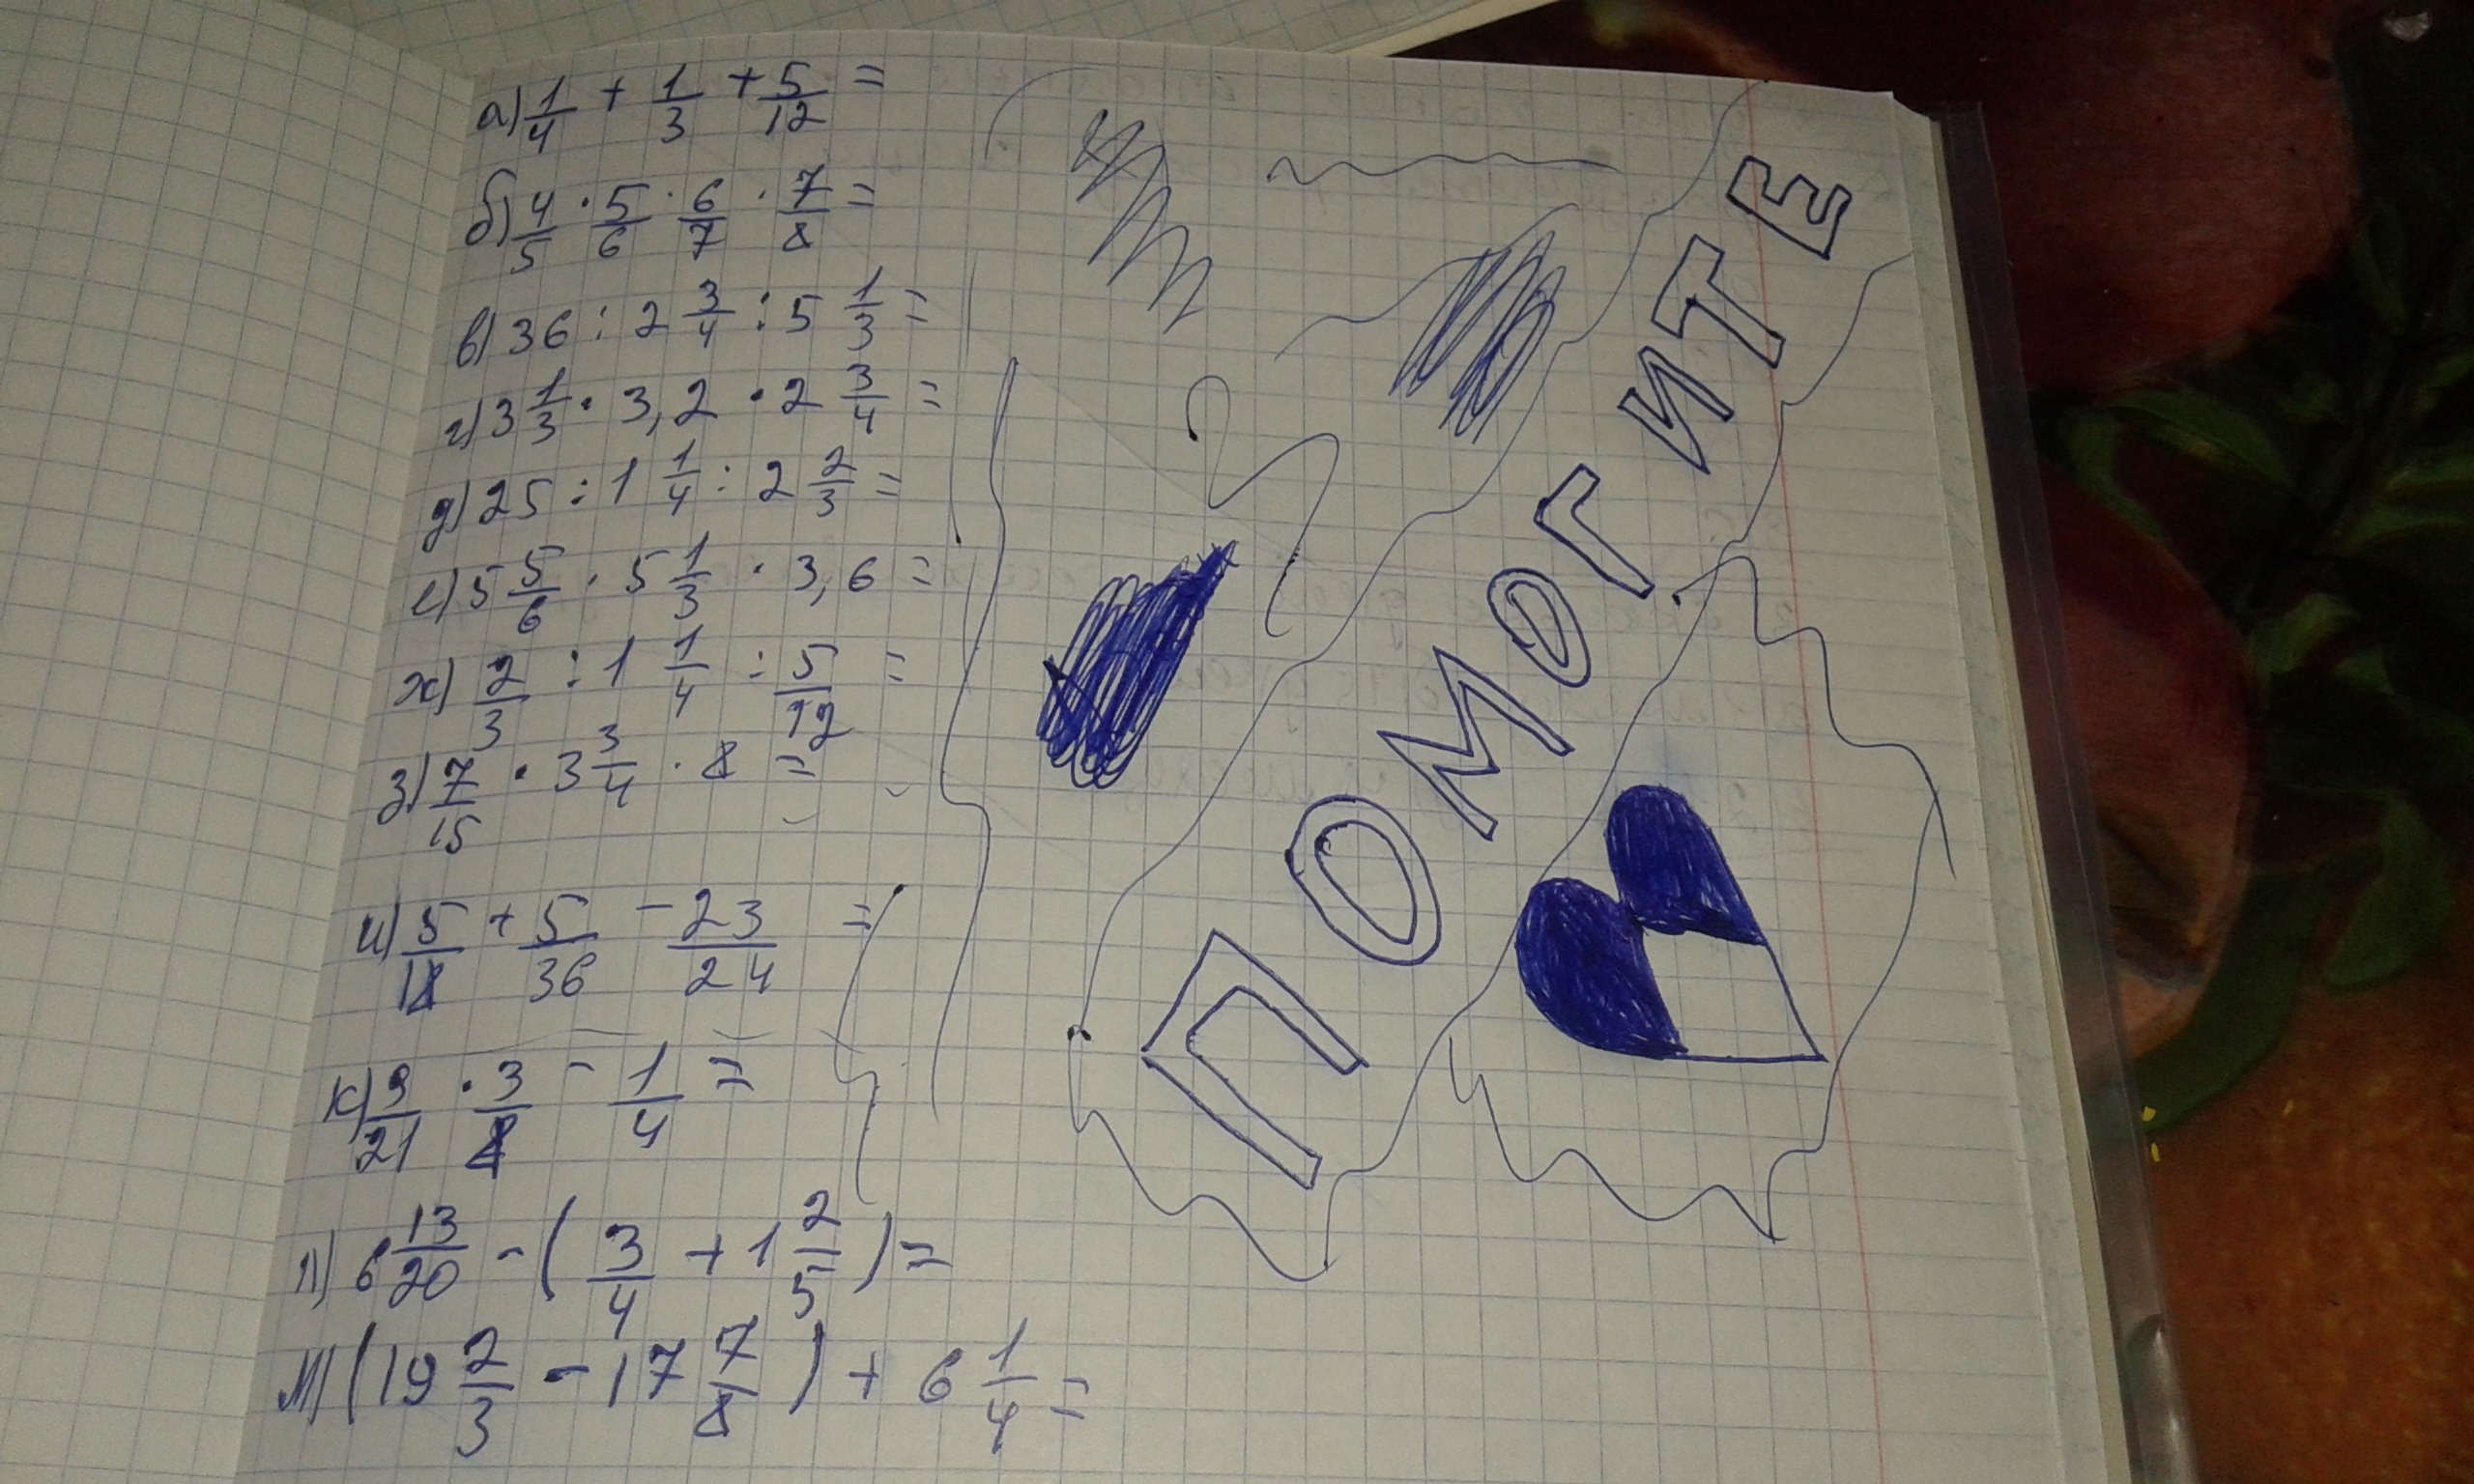 а) 1/4 + 1/3 + 5/12 =
б) 4/5 · 5/6 · 6/7 · 7/8 =
в) 36 : 2 3/4 : 5 1/3 =
г) 3 1/3 · 3,2 · 2 3/4 =
д) 25 : 1 1/4 : 2 2/3 =
е) 5 5/6 · 5 1/3 · 3,6 =
ж) 2/3 : 1 1/4 : 5/12 =
з) 7/15 · 3 3/4 · 8 =
и) 5/18 + 5/36 - 23/24 =
к) 9/21 · 3/8 - 1/4 =
л) 6 13/20 - (3/4 + 1 2/5) =
м) (19 2/3 - 17 7/8) + 6 1/4 =
ПОМОГИТЕ